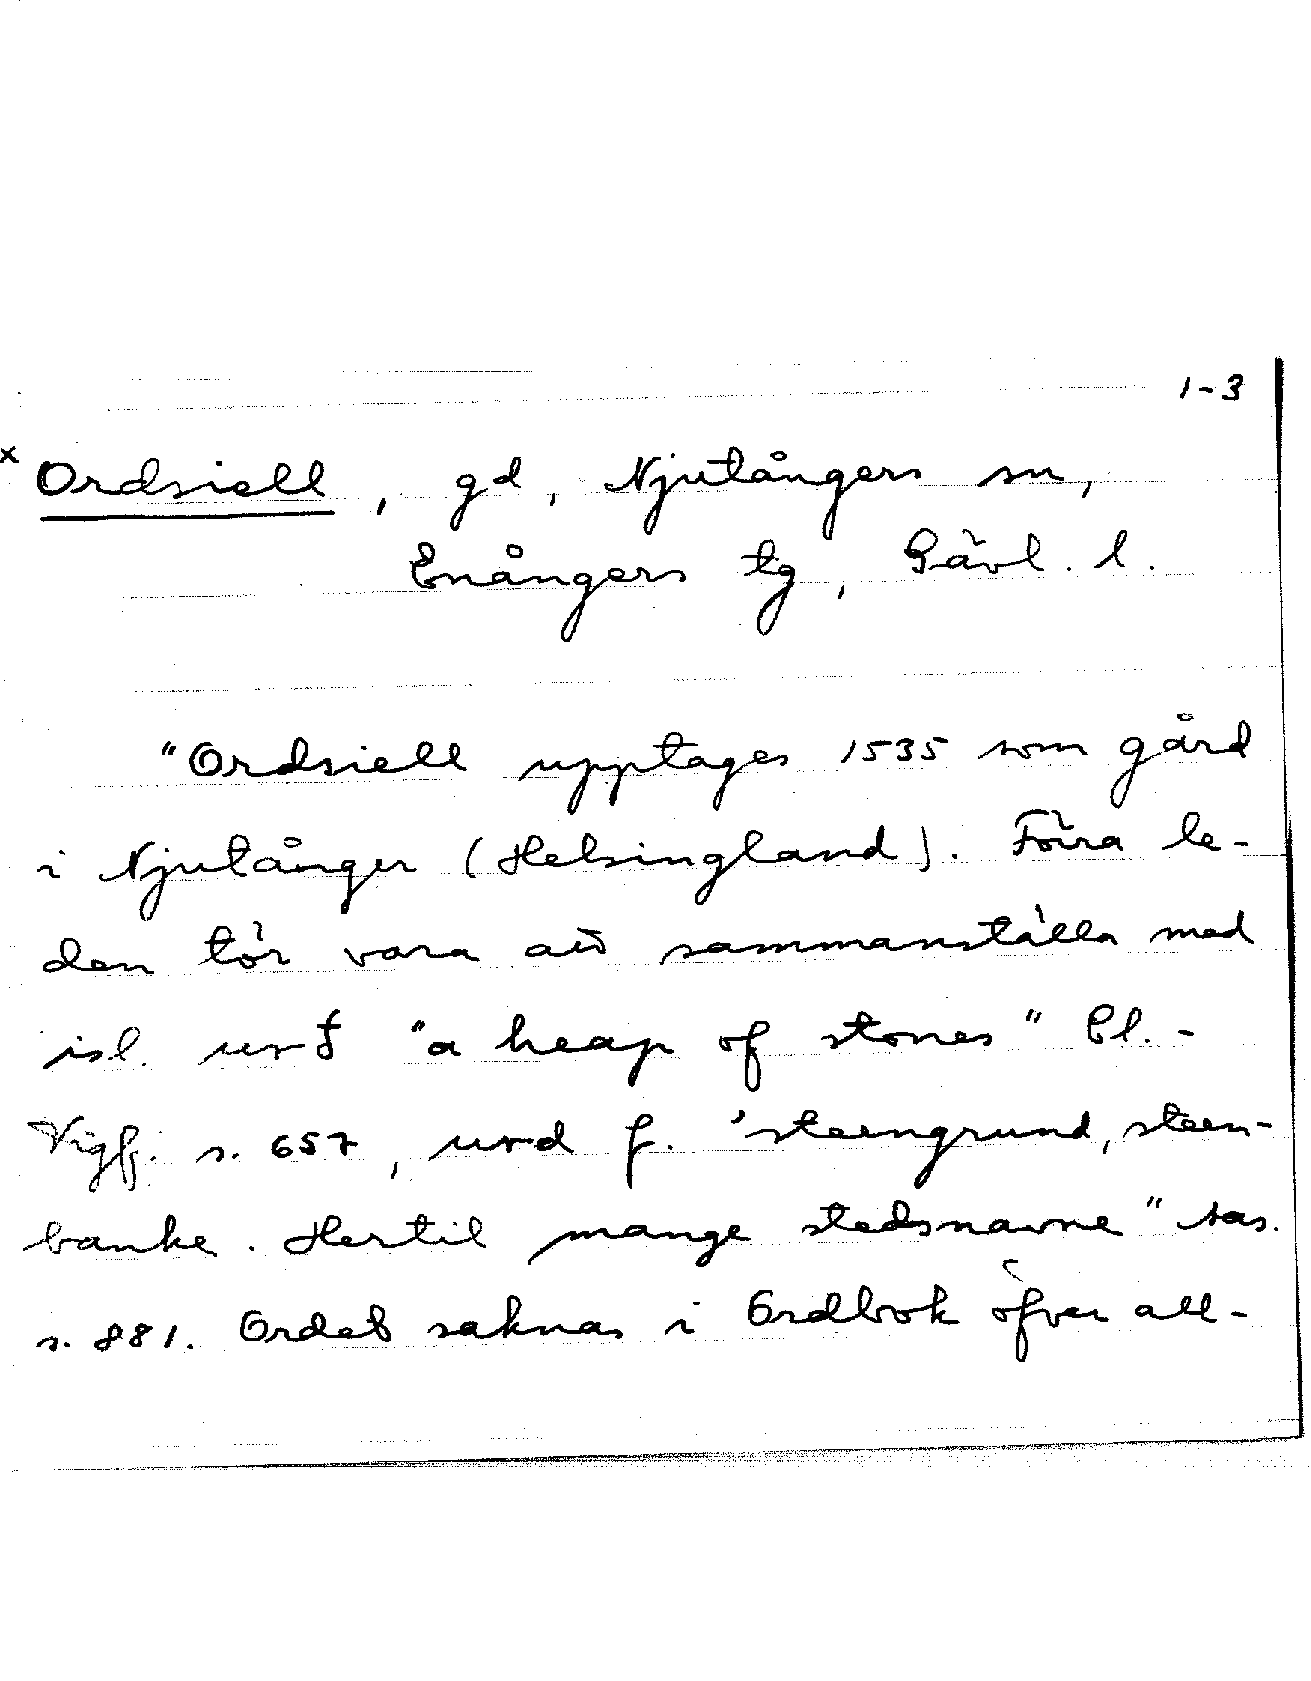 1-3
x Ordsiell, gd, Njutångers sn,
Enångers tg, Gävl. l.
"Ordsiell upptages 1535 som gård
i Njutånger (Helsingland). Förra le-
den tör vara att sammanställa med
isl. urð "a heap of stones" Cl.-
Vigf. s. 657, urd f. 'steengrund, steen-
banke. Hertil mange stedsnavne" Aas.
s. 881. Ordet saknas i Ordbok öfver all-